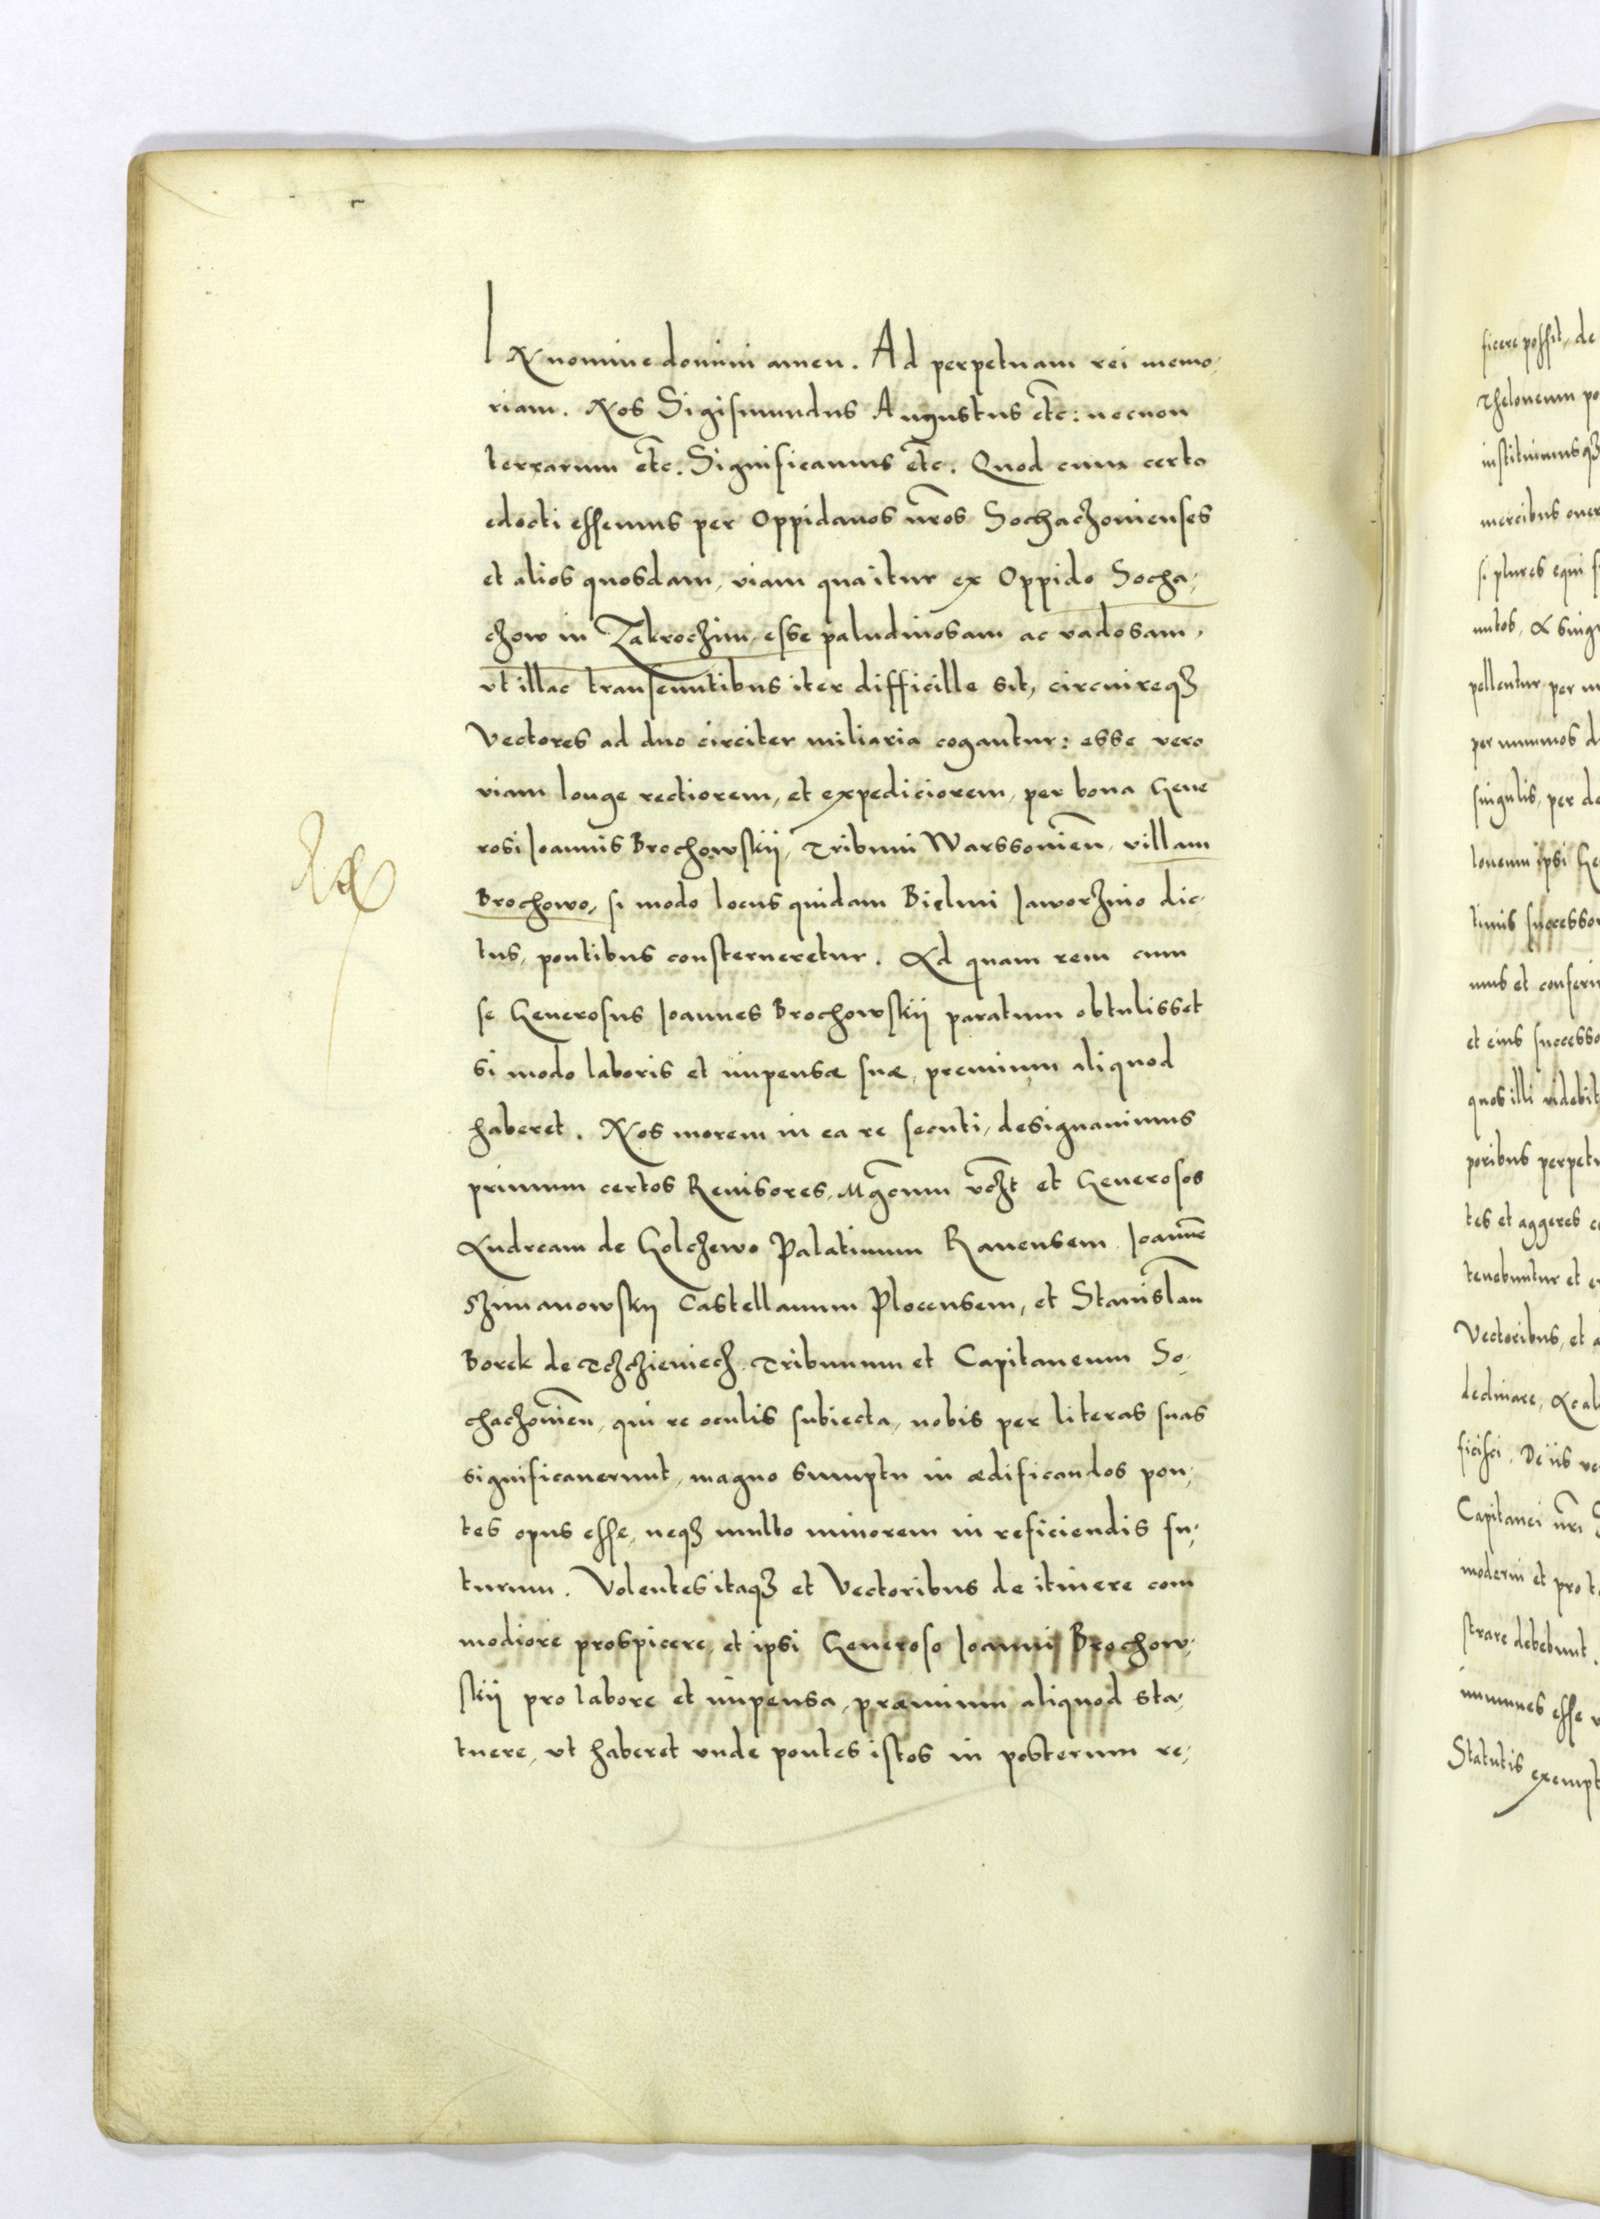 IN nomine domini amen. Ad perpetuam rei memo,
riam. Nos Sigismundus Augustus etc: necnon
terrarum etc. Significamus etc. Quod cum certo
edocti essemus per Oppidanos nros Sochaczouienses
et alios quosdam, viam qua itur ex Oppido Socha,
czow in Zakroczim, esse paludinosam ac vadosam,
vt illac transeuntibus iter difficille sit, circuireqz
Vectores ad duo circiter miliaria cogantur: esse vero
viam longe rectiorem, et expediciorem, per bona Gene
rosi Joannis Brochowskij, Tribuni Warssouien, villam
Brochowo, si modo locus quidam Bielini Jaworznio dic,
tus, pontibus consterneretur. Ad quam rem cum
se Generosus Joannes Brochowskij paratum obtulisset
si modo laboris et impensæ suæ, premium aliquod
haberet. Nos morem in ea re secuti, designauimus
primum certos Reuisores, Mgcum vczt et Generosos
Andream de Golczewo Palatinum Rauensem, Joanne
Szimanowskij Castellanum Plocensem, et Stanislau
Borek de Tczczieniecz Tribunum et Capitaneum So,
chaczouien, qui re oculis subiecta, nobis per literas suas
significauerunt, magno sumptu in ædificandos pon,
tes opus esse, neqz multo minorem in reficiendis fu,
turum. Volentes itaqz et Vectoribus de itinere com
modiore prospicere, et ipsi Generoso Joanni Brochow,
skij pro labore et impensa, præmium aliquod sta,
tuere, vt haberet vnde pontes istos in posterum re,
ficere possit, de
Theloneum po
instituimusqz
mercibus oner
si plures equi
pellentur, per
per nummos
singulis, per de
loneum ipsi Ge
timis successor
mus et conferi
et eius successo
quos illi videbit
poribus perpetu
tes et aggeres
tenebuntur et
Vectoribus, et a
declinare,
ficisci. De iis
Capitanei nri
moderni et pro
strare debebunt.
immunes esse
Statutis exempt